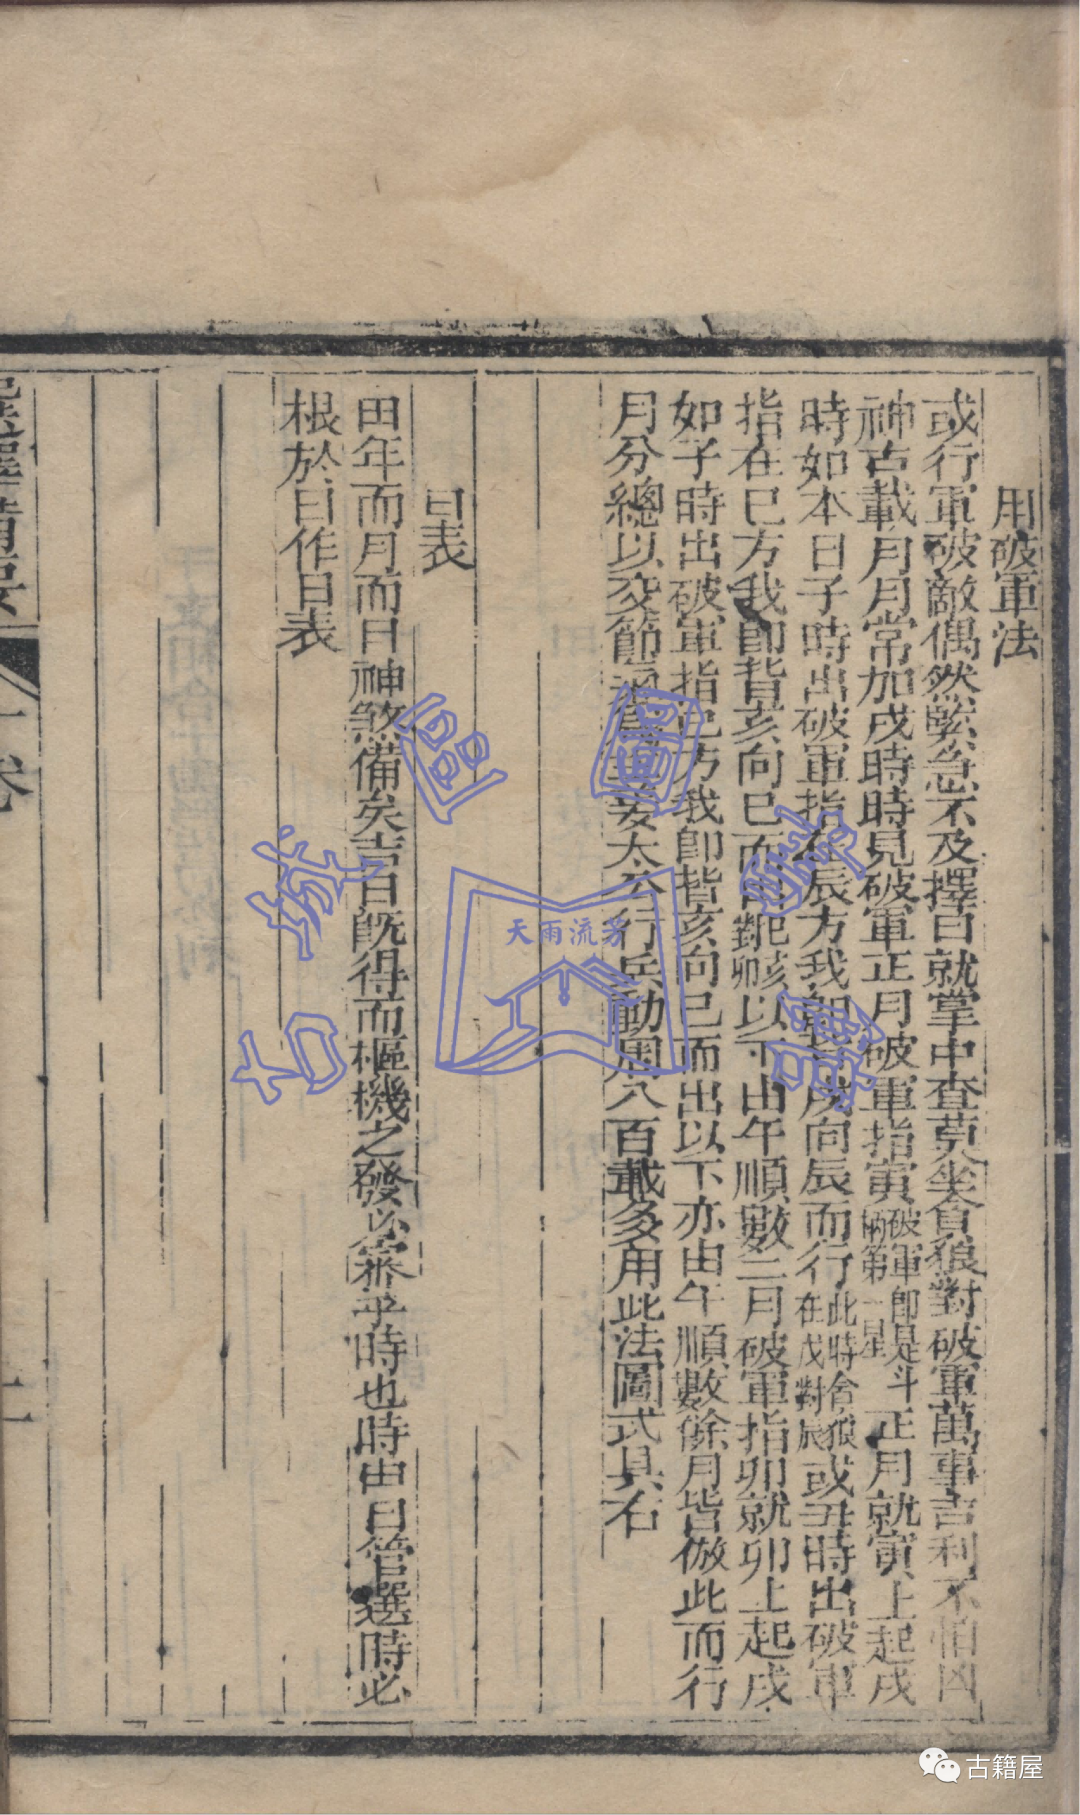 用破軍法
或行軍破敵偶然緊急不及擇日就掌中查莫坐貪狼對破軍萬事吉利不怕凶
神古載月月常加戌時時見破軍正月破軍指寅破軍即是斗柄第一星正月就寅上起戌
時如本日子時出破軍指在辰方我即背戌向辰而行此時貪狼在戌對辰或丑時出破軍
指在巳方我卽背亥向巳而由午順數二月破軍指卯就卯上起戌
如子時出破軍指巳方我卽背亥向巳而出以下亦由午順數餘月皆倣此而行
月分總以交節太公行兵動周八百載多用此法圖式具右
日表
由年而月而日神煞備矣吉日旣得而樞機之發必審乎時也時由日管選時必
根於日作日表
選擇備要
卷
天雨流芳
古籍圖書
古籍屋